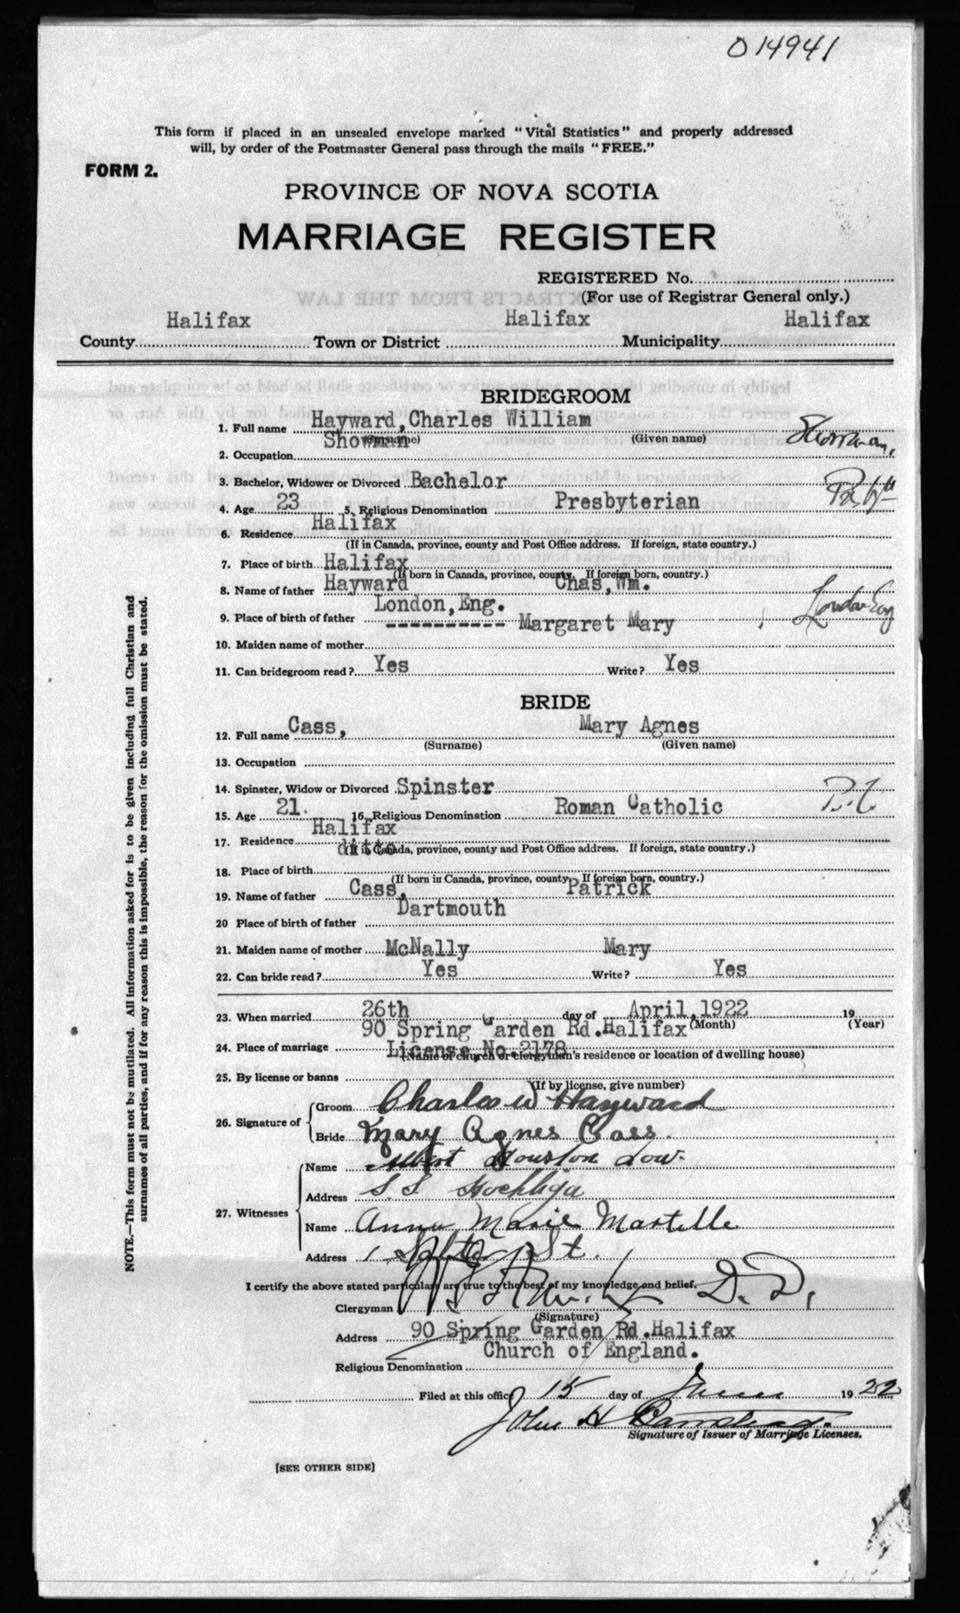 014941
This form if placed in an unsealed envelope marked "Vital Statistics" and properly addressed
will, by order of the Postmaster General pass through the mails "FREE."
FORM 2.
PROVINCE OF NOVA SCOTIA
MARRIAGE REGISTER
REGISTERED No.
(For use of Registrar General only.)
Halifax Halifax Halifax
County Town or District Municipality
BRIDEGROOM
1. Full name Hayward, Charles William
(Surname) (Given name)
Showman Showman,
2. Occupation
3. Bachelor, Widower or Divorced Bachelor
4. Age 23 5. Religious Denomination Presbyterian
Halifax
6. Residence
(If in Canada, province, county and Post Office address. If foreign, state country.)
7. Place of birth Halifax
(If born in Canada, province, county. If foreign born, country.)
8. Name of father Hayward Chas, Wm.
London, Eng. London Eng
9. Place of birth of father
---------- Margaret Mary
10. Maiden name of mother
11. Can bridegroom read? Yes Write? Yes
BRIDE
12. Full name Cass, Mary Agnes
(Surname) (Given name)
13. Occupation
14. Spinster, Widow or Divorced Spinster
R.C
15. Age 21. 16. Religious Denomination Roman Catholic
Halifax
17. Residence
ditto
(If in Canada, province, county and Post Office address. If foreign, state country.)
18. Place of birth
(If born in Canada, province, county. If foreign born, country.)
19. Name of father Cass, Patrick
Dartmouth
20 Place of birth of father
21. Maiden name of mother McNally Mary
22. Can bride read? Yes Write? Yes
23. When married 26th day of April, 1922 19
(Month) (Year)
90 Spring Garden Rd. Halifax
24. Place of marriage
License No. 2178
(Name of church or clergyman's residence or location of dwelling house)
25. By license or banns
(If by license, give number)
26. Signature of
Groom Charles W Hayward
Bride Mary Agnes Cass.
27. Witnesses
Name Albert Houston Low.
Address S.S.
Name Annie Marie Martelle
Address 1 St.
I certify the above stated particulars are true to the best of my knowledge and belief.
Clergyman D.D.,
(Signature)
Address 90 Spring Garden Rd. Halifax
Church of England.
Religious Denomination
Filed at this office 15 day of June 1922
John H
Signature of Issuer of Marriage Licenses.
[SEE OTHER SIDE]
NOTE.—This form must not be mutilated. All information asked for is to be given including full Christian and
surnames of all parties, and if for any reason this is impossible, the reason for the omission must be stated.